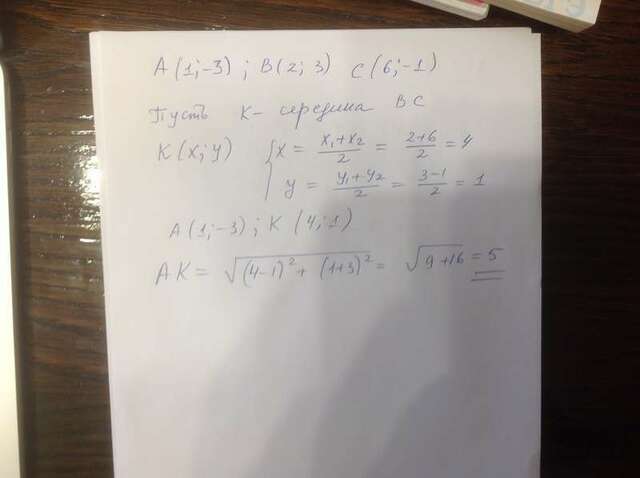 A (1;-3) ; B (2; 3) C (6;-1)
Пусть K - середина BC
K (x; y) { x = \frac{x₁+x₂}{2} = \frac{2+6}{2} = 4
y = \frac{y₁+y₂}{2} = \frac{3-1}{2} = 1
A (1;-3) ; K (4;1)
AK = \sqrt{(4-1)² + (1+3)²} = \sqrt{9+16} = 5